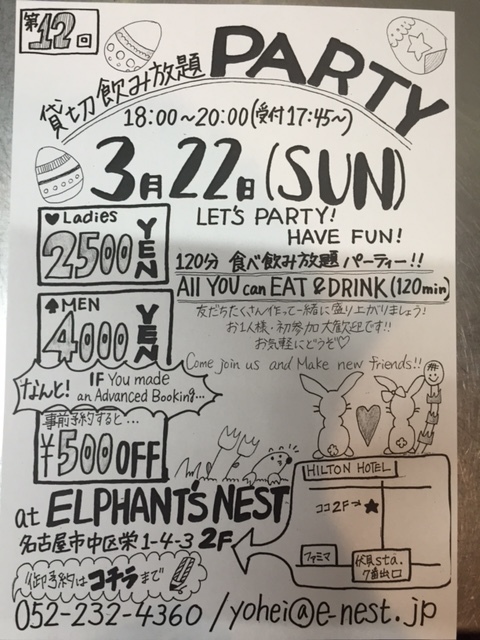 第12回
貸切飲み放題 PARTY
18:00～20:00(受付17:45～)
3月22日(SUN)
♥Ladies
2500 YEN
LET'S PARTY!
HAVE FUN!
120分 食べ飲み放題 パーティー!!
All YOU can EAT & DRINK (120min)
♠MEN
4000 YEN
友だちたくさん作って一緒に盛り上がりましょう!
お1人様・初参加 大歓迎です!!
お気軽にどうぞ♡
Come join us and Make new friends!!
なんと! IF You made an Advanced Booking...
事前予約すると…
¥500 OFF
HILTON HOTEL
ココ2F→★
ファミマ
伏見sta.
7番出口
at ELPHANT'S NEST
名古屋市中区栄1-4-3 2F
御予約はコチラまで
052-232-4360 / yohei@e-nest.jp